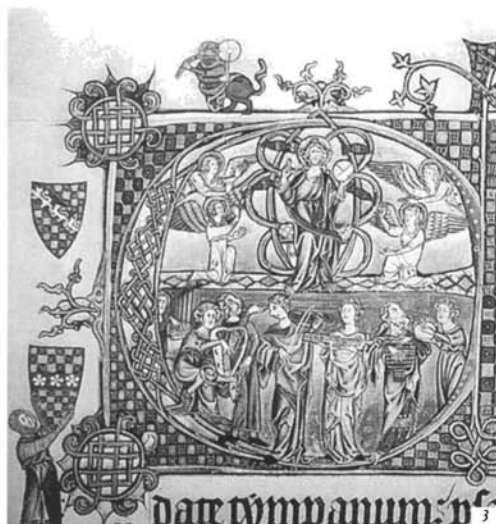 date tympanum: ps
3